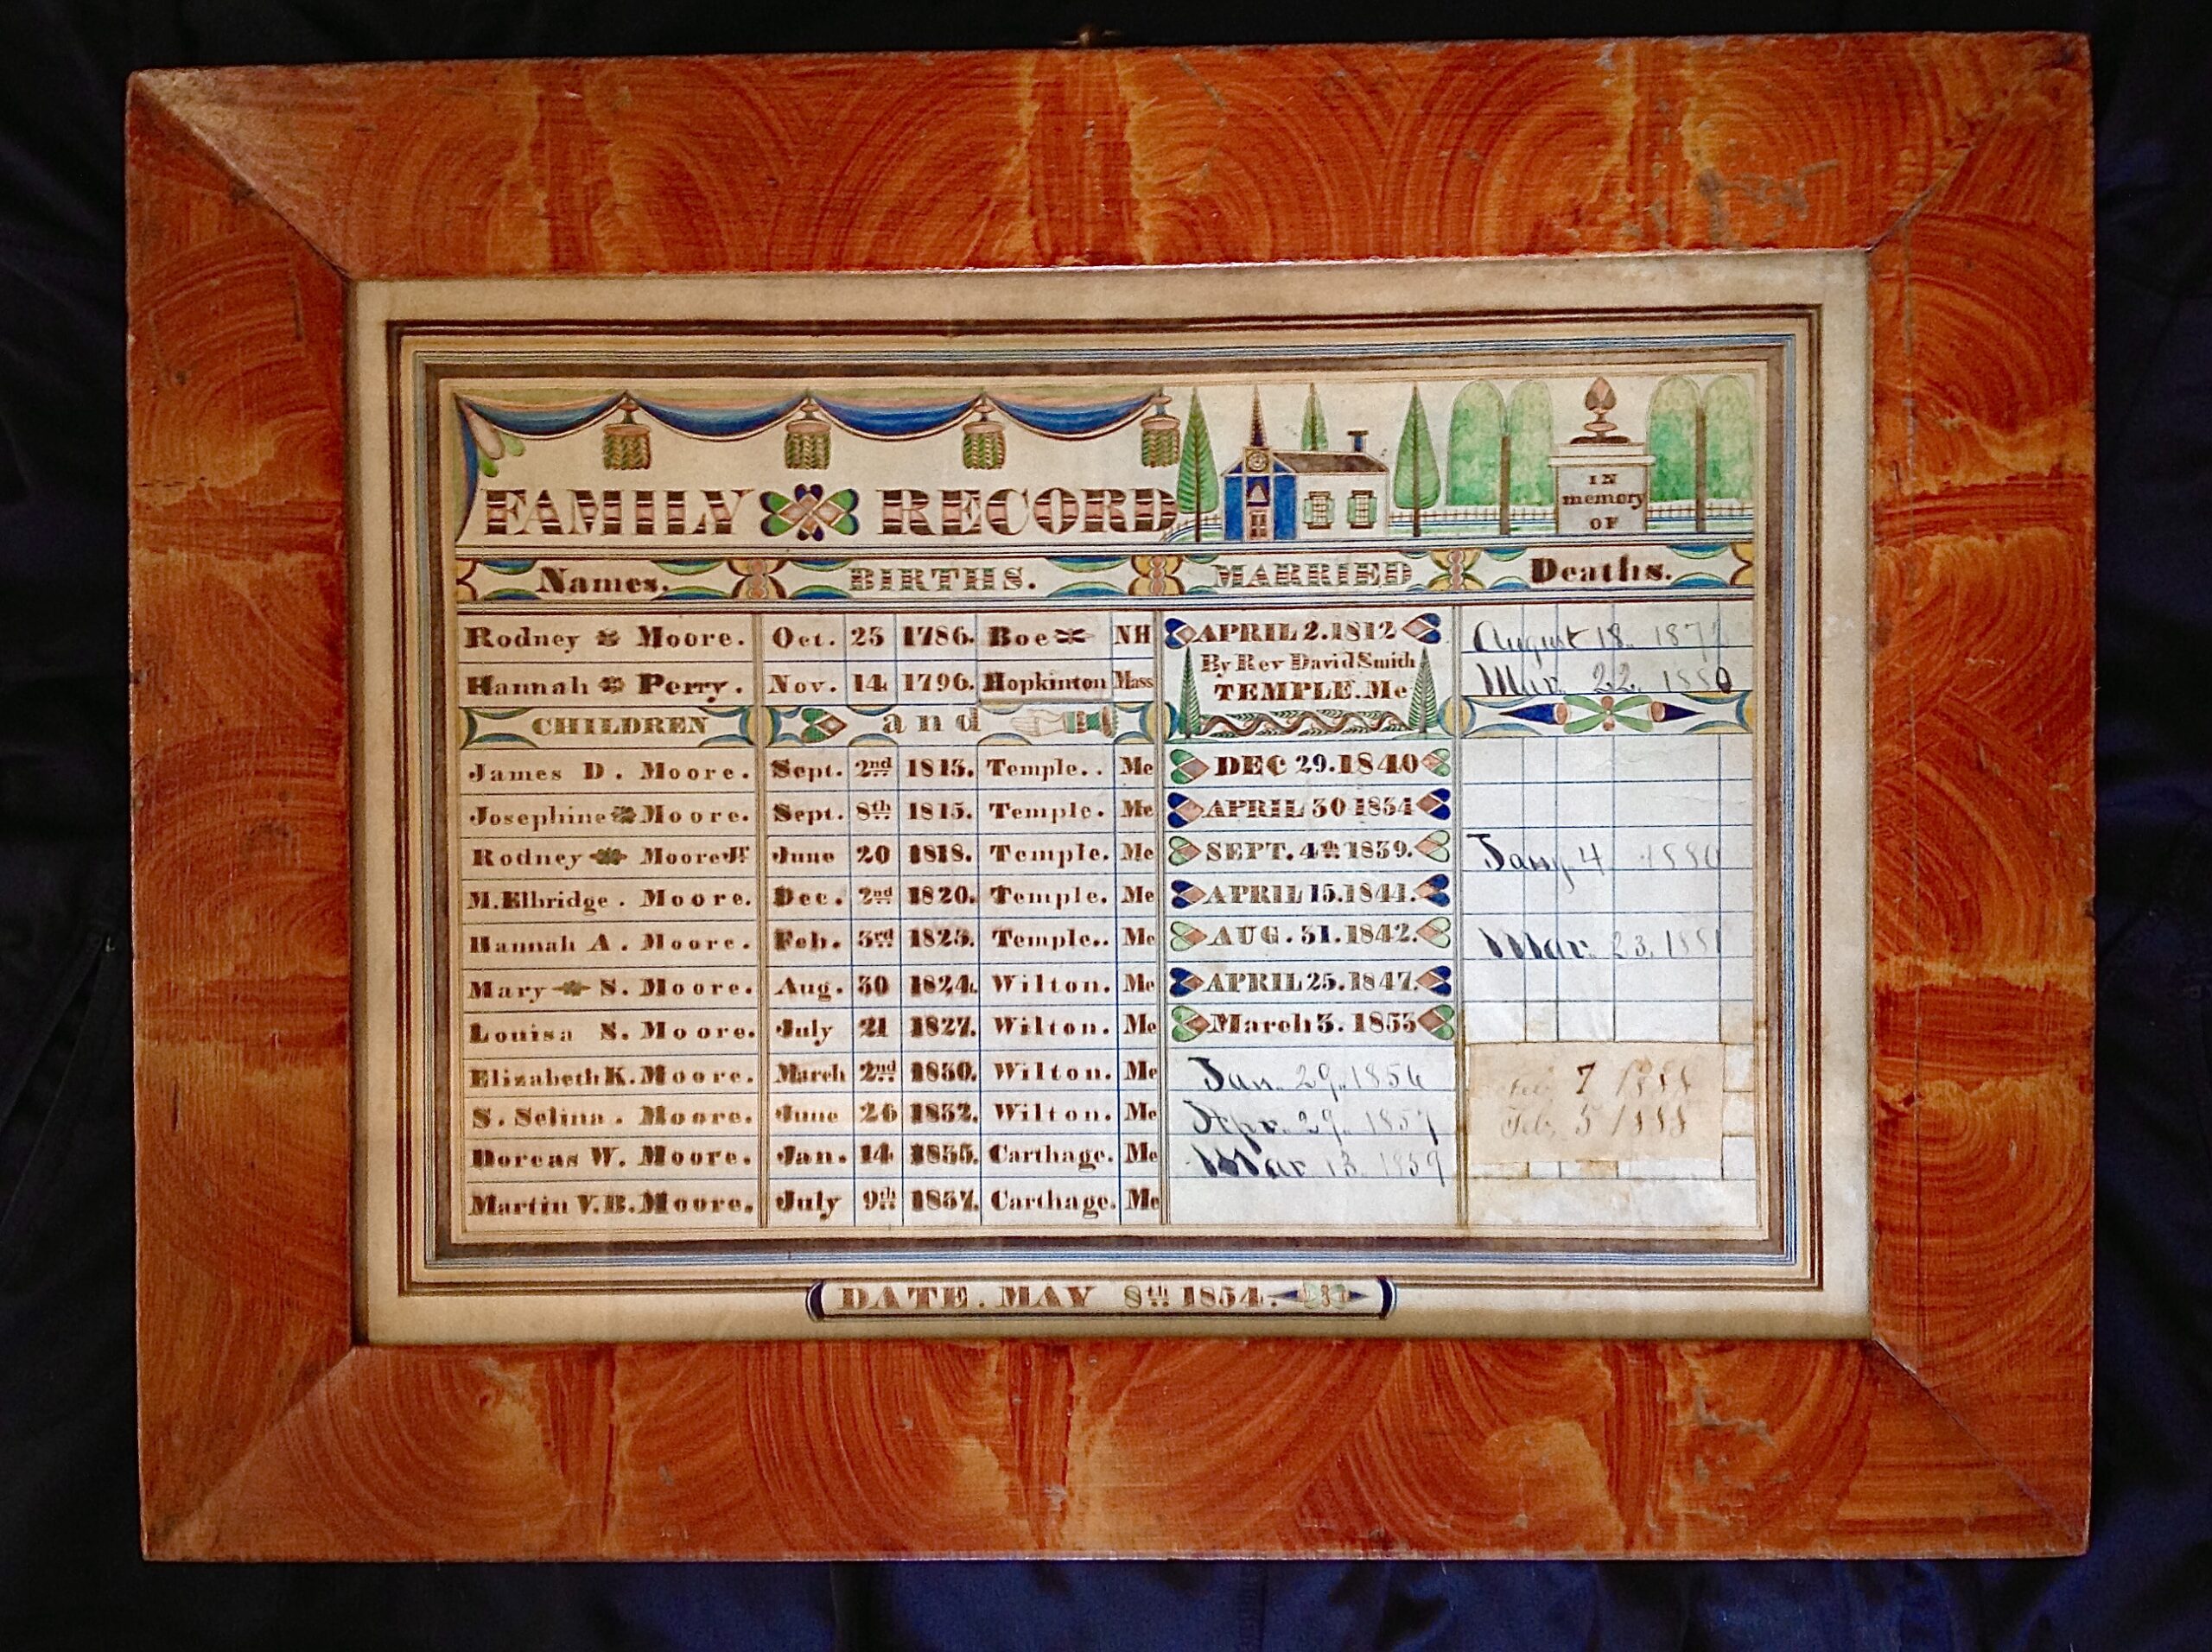 FAMILY RECORD
IN
memory
OF
Names. BIRTHS. MARRIED Deaths.
Rodney Moore. Oct. 23 1786. Boe NH APRIL 2.1812 August 18. 187
By Rev David Smith
Hannah Perry. Nov. 14 1796. Hopkinton Mass TEMPLE. Me Mar. 22. 1880
CHILDREN and
James D. Moore. Sept. 2nd 1813. Temple.. Me DEC 29.1840
Josephine Moore. Sept. 8th 1815. Temple. Me APRIL 30 1834
Rodney Moore Jr June 20 1818. Temple. Me SEPT. 4th 1839. Jany. 4 1880
M. Elbridge. Moore. Dec. 2nd 1820. Temple. Me APRIL 15.1844.
Hannah A. Moore. Feb. 3rd 1823. Temple.. Me AUG. 31.1842. Mar. 23. 1881
Mary S. Moore. Aug. 30 1824. Wilton. Me APRIL 25.1847.
Louisa S. Moore. July 21 1827. Wilton. Me March 3. 1853
Elizabeth K. Moore. March 2nd 1830. Wilton. Me Jan. 29. 1856 Feb, 7 1888
S. Selina. Moore. June 26 1832. Wilton. Me Apr. 29. 1857 Feb, 5 1888
Dorcas W. Moore. Jan. 14 1835. Carthage. Me Mar 13. 1859
Martin V.B. Moore. July 9th 1837. Carthage. Me
DATE. MAY 8th 1854.